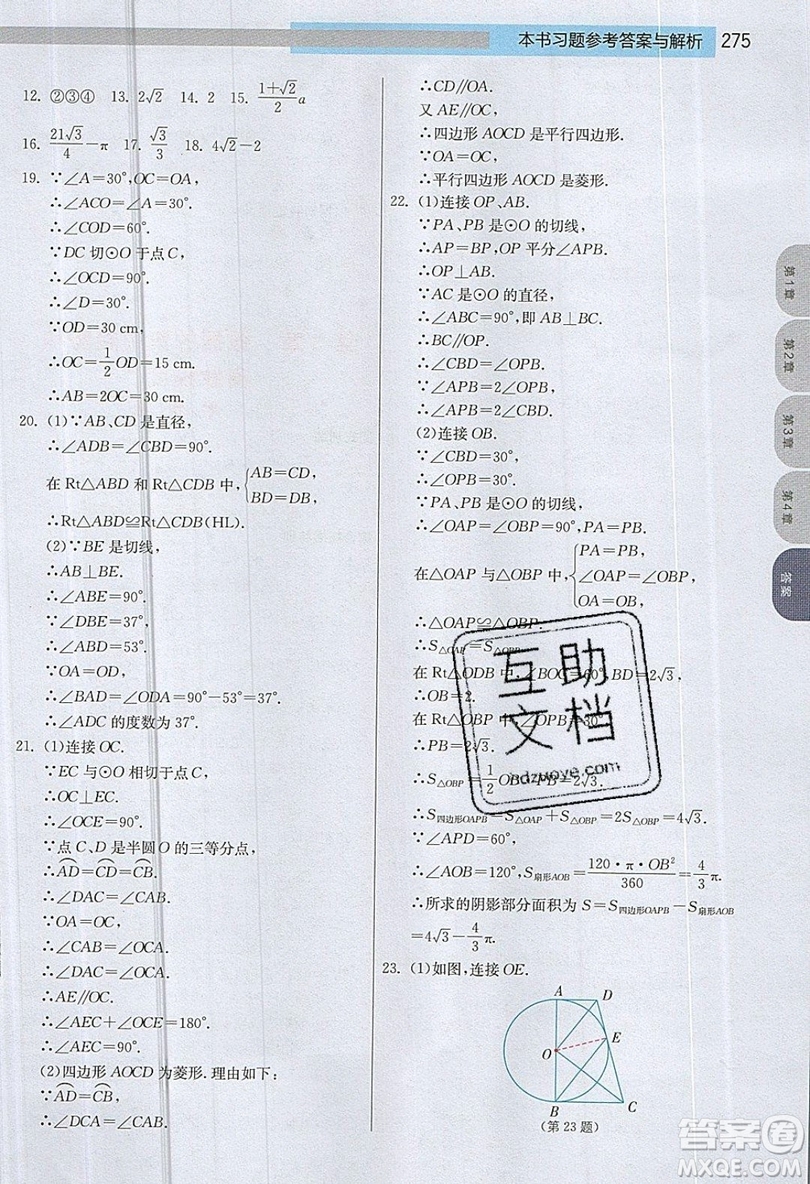 本书习题参考答案与解析 275
12. ②③④ 13. 2√2 14. 2 15. (1+√2)/2 a
16. 21√3/4－π 17. √3/3 18. 4√2－2
19. ∵∠A=30°,OC=OA,
∴∠ACO=∠A=30°.
∴∠COD=60°.
∵DC 切⊙O 于点 C,
∴∠OCD=90°.
∴∠D=30°.
∵OD=30 cm,
∴OC=1/2 OD=15 cm.
∴AB=2OC=30 cm.
20. (1)∵AB、CD 是直径,
∴∠ADB=∠CBD=90°.
在 Rt△ABD 和 Rt△CDB 中,{AB=CD,
BD=DB,
∴Rt△ABD≌Rt△CDB(HL).
(2)∵BE 是切线,
∴AB⊥BE.
∴∠ABE=90°.
∵∠DBE=37°,
∴∠ABD=53°.
∵OA=OD,
∴∠BAD=∠ODA=90°－53°=37°.
∴∠ADC 的度数为 37°.
21. (1)连接 OC.
∵EC 与⊙O 相切于点 C,
∴OC⊥EC.
∴∠OCE=90°.
∵点 C、D 是半圆 O 的三等分点,
∴⌒AD=⌒CD=⌒CB.
∴∠DAC=∠CAB.
∵OA=OC,
∴∠CAB=∠OCA.
∴∠DAC=∠OCA.
∴AE∥OC.
∴∠AEC+∠OCE=180°.
∴∠AEC=90°.
(2)四边形 AOCD 为菱形.理由如下:
∵⌒AD=⌒CB,
∴∠DCA=∠CAB.
∴CD∥OA.
又 AE∥OC,
∴四边形 AOCD 是平行四边形.
∵OA=OC,
∴平行四边形 AOCD 是菱形.
22. (1)连接 OP、AB.
∵PA、PB 是⊙O 的切线,
∴AP=BP,OP 平分∠APB.
∴OP⊥AB.
∵AC 是⊙O 的直径,
∴∠ABC=90°,即 AB⊥BC.
∴BC∥OP.
∴∠CBD=∠OPB.
∵∠APB=2∠OPB,
∴∠APB=2∠CBD.
(2)连接 OB.
∵∠CBD=30°,
∴∠OPB=30°.
∵PA、PB 是⊙O 的切线,
∴∠OAP=∠OBP=90°,∠APB=60°.
在△OAP 与△OBP 中,{PA=PB,
OP=OP,
OA=OB,
∴△OAP≌△OBP.
∴S△OAP=S△OBP.
在 Rt△ODB 中,∠BOC=60°,BD=2√3,
∴OB=2.
在 Rt△OBP 中,∠OPB=30°,
∴PB=2√3.
∴S△OBP=1/2 OB×PB=2√3.
∴S四边形OAPB=S△OAP+S△OBP=2S△OBP=4√3.
∵∠APD=60°,
∴∠AOB=120°,S扇形AOB=120·π·OB²/360=4/3π.
∴所求的阴影部分面积为 S=S四边形OAPB－S扇形AOB
=4√3－4/3π.
23. (1)如图,连接 OE.
A D
E
O
B C
(第 23 题)
第1章
第2章
第3章
第4章
答案
互助
文档
hdzuoye.com
答案圈
MXQE.COM